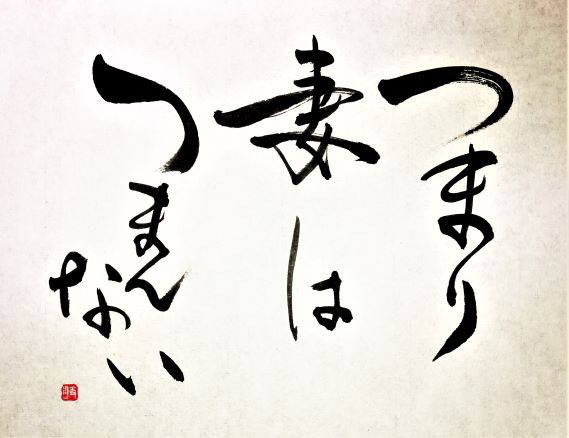 つまり
妻は
つまんない